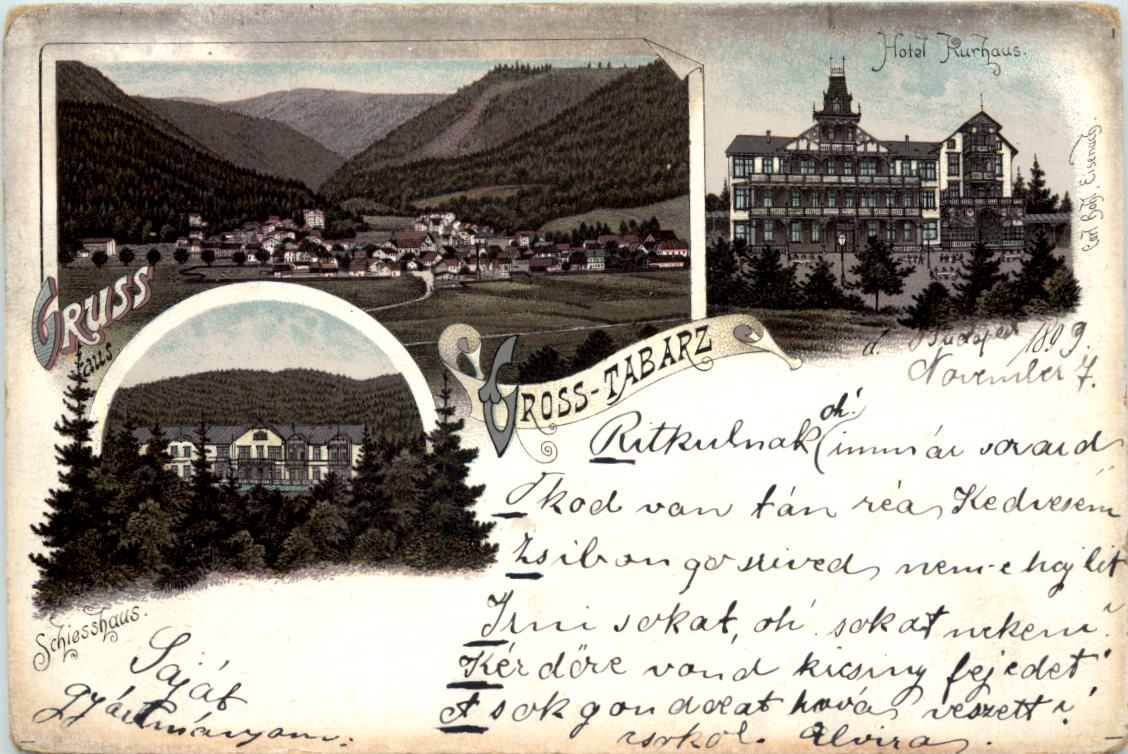 Hotel Kurhaus.
Gruss
aus
Gross-Tabarz
Schiesshaus.
d. Budapest 1899.
November 7.
Ritkulnak (oh! immár soraid
Ok od van tán réa, Kedvesem
Zsibongo szived, nem-e hajlit
Irni sokat, oh sokat nekem!
Kérdőre vond kicsiny fejedet
A sok gondolat hová veszett!
csókol. Elvira.
Saját
gyártmányom.